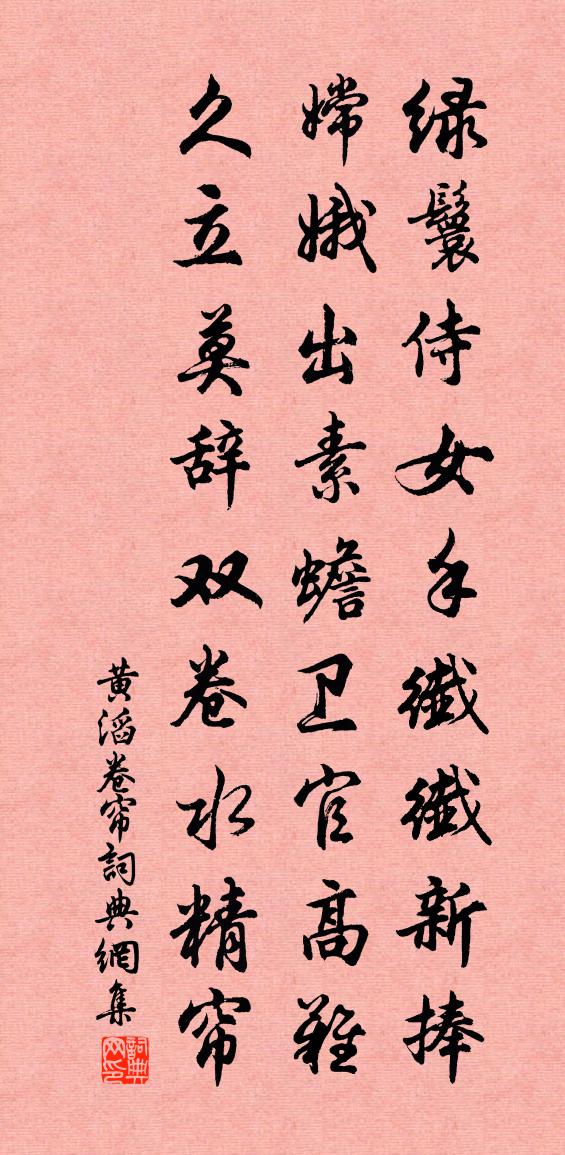 绿鬟侍女手纤纤新捧
嫦娥出素蟾卫官高难
久立莫辞双卷水精帘
黄滔卷帘詞典網集
詞典网印